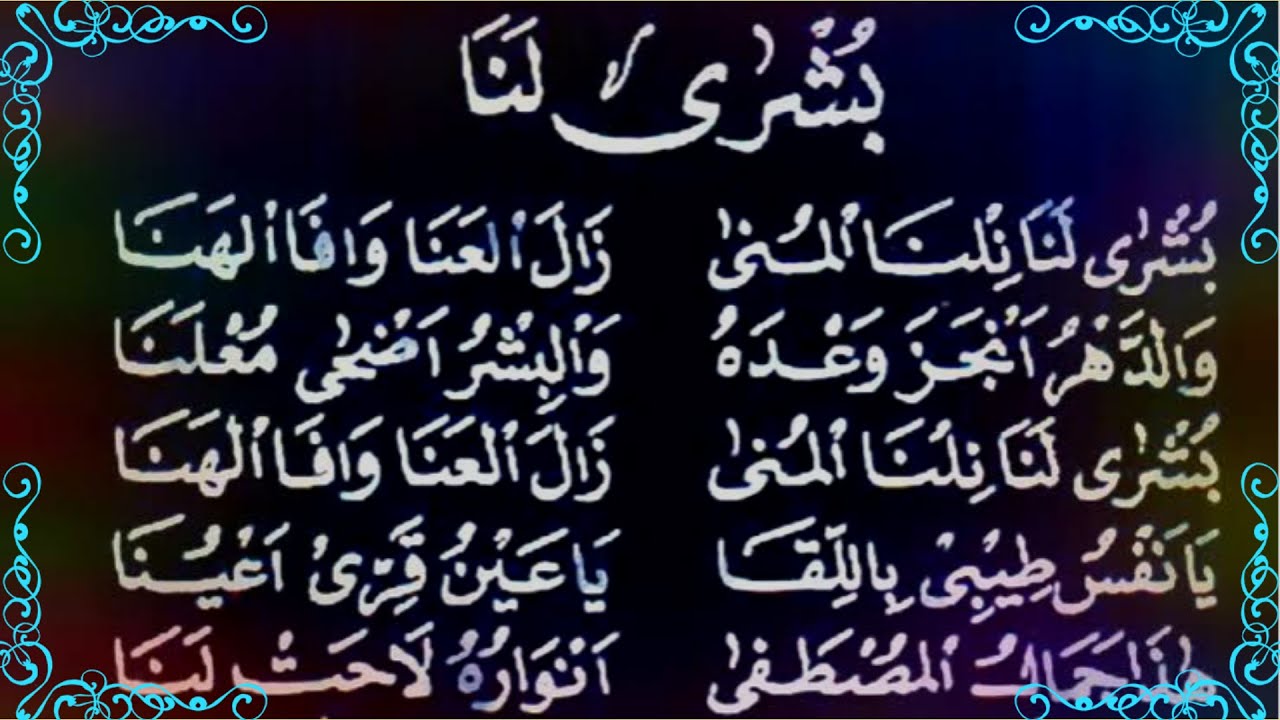 بُشْرٰى لَنَا
بُشْرٰى لَنَا نِلْنَا الْمُنٰى زَالَ الْعَنَا وَافَا الْهَنَا
وَالدَّهْرُ اَنْجَزَ وَعْدَهُ وَالْبِشْرُ اَضْحٰى مُعْلَنَا
بُشْرٰى لَنَا نِلْنَا الْمُنٰى زَالَ الْعَنَا وَافَا الْهَنَا
يَا نَفْسُ طِيْبِيْ بِاللِّقَا يَا عَيْنُ قَرِّيْ اَعْيُنَا
هٰذَا جَمَالُ الْمُصْطَفٰى اَنْوَارُهُ لَاحَتْ لَنَا